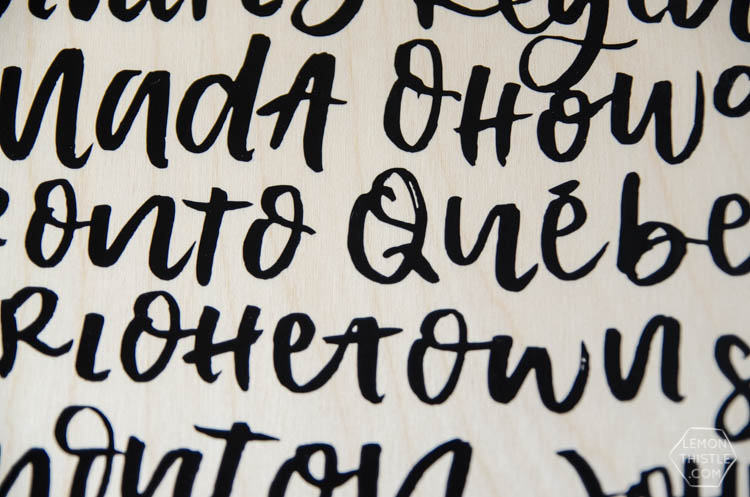 Regin
nada Ottawa
ronto Québe
rlottetown
monton
LEMON THISTLE .COM